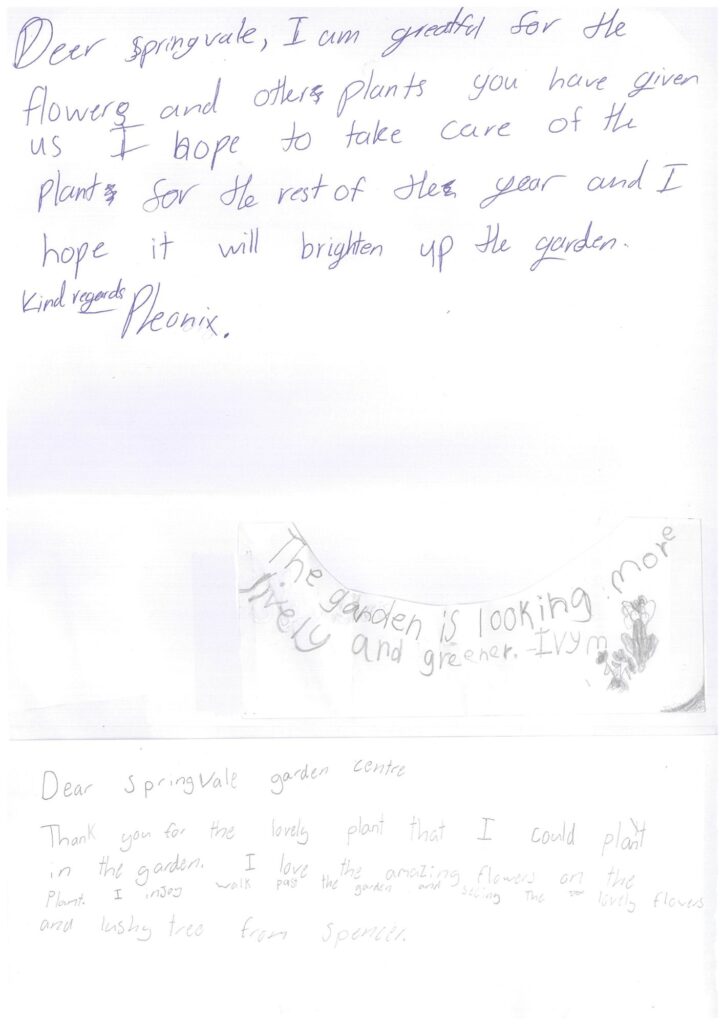 Dear springvale, I am greatful for the
flowers and others plants you have given
us I hope to take care of the
plants for the rest of the year and I
hope it will brighten up the garden.
Kind regards
Pheonix.
The garden is looking more
lively and greener. -Ivy m
Dear springvale garden centre
Thank you for the lovely plant that I could plant
in the garden. I love the amazing flowers on the
Plant. I injoy walk past the garden and seeing the lovely flowers
and lushy tree from spencer.